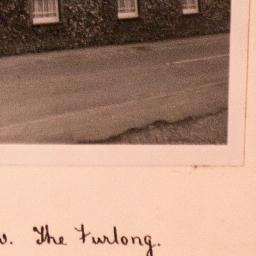 . The Furlong.